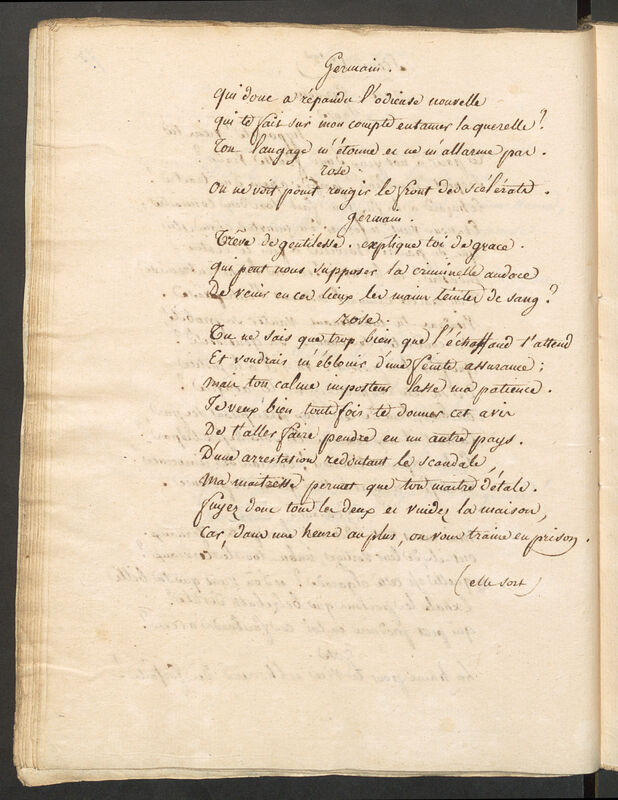 Germain.
qui donc a répandu l'odieuse nouvelle
qui te fait sur mon compte entamer la querelle ?
Ton langage m'étonne et ne m'allarme pas.
rose.
On ne voit point rougir le front des scélérats.
germain.
Trêve de gentilesse. explique toi de grace.
qui peut nous supposer la criminelle audace
De venir en ces lieux les mains teintes de sang ?
rose.
Tu ne sais que trop bien que l'échaffaud t'attend
Et voudrais m'éblouir d'une feinte assurance ;
mais ton calme imposteur lasse ma patience.
Je veux bien toutefois te donner cet avis
De t'aller faire pendre en un autre pays.
D'une arrestation redoutant le scandale,
Ma maitresse permet que ton maitre détale.
fuyez donc tous les deux et vuidez la maison,
Car, dans une heure au plus, on vous traine en prison.
(elle sort)